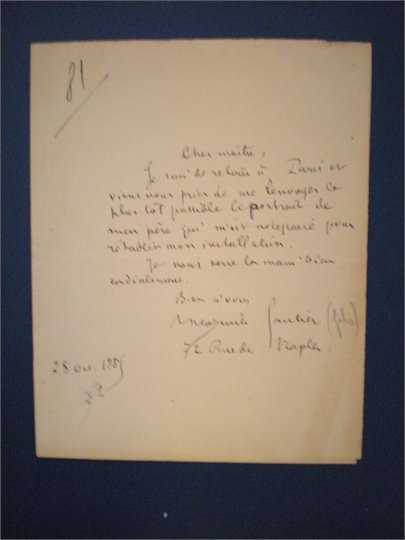 81
Cher maître,
Je suis de retour à Paris et
viens vous prier de me renvoyer le
plus tôt possible le portrait de
mon père qui m'est nécessaire pour
rétablir mon installation.
Je vous serre la main bien
cordialement.
Bien à vous
Gautier (fils)
72 Rue de Naples.
28 Oct 188